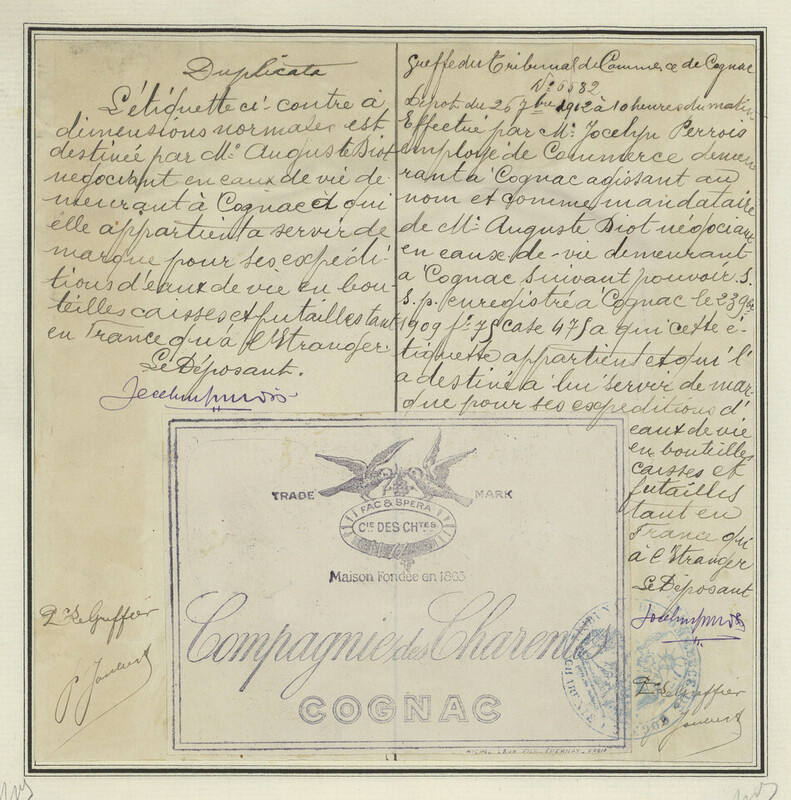 Duplicata
L'étiquette ci-contre à
dimensions normales est
destinée par Mr Auguste Diot
négociant en eaux de vie de-
meurant à Cognac et qui
elle appartient a servir de
marque pour ses expédi-
tions d'eaux de vie en bou-
teilles caisses et futailles tant
en France qu'à l'Etranger.
Le Déposant.
Greffe du Tribunal de Commerce de Cognac
No 6582
Dépôt du 26 7bre 1912 à 10 heures du matin
Effectué par Mr Jocelyn Perrois
employé de Commerce demeu
rant à Cognac agissant au
nom et comme mandataire
de Mr Auguste Diot négociant
en eaux-de-vie demeurant
à Cognac suivant pouvoir s.
s. p. enregistré à Cognac le 23 9bre
1909 fo 75 case 475 a qui cette é-
tiquette appartient et qu'il
a destiné a lui servir de mar-
que pour ses expéditions d'
eaux de vie
en bouteilles
caisses et
futailles
tant en
France qu'
à l'Etranger
Le Déposant
TRADE MARK
FAC & SPERA
CIE DES CHTES
Maison Fondée en 1863
Compagnie des Charentes
COGNAC
Pr Le Greffier
Pr Le Greffier